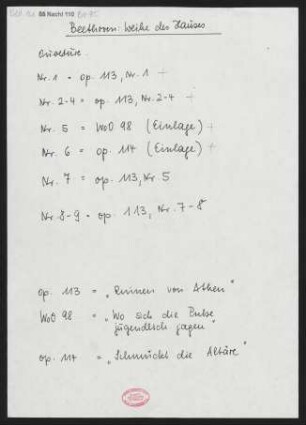 55 Nachl 110
Beethoven: Weihe des Hauses
Ouvertüre
Nr. 1 = op. 113, Nr. 1 +
Nr. 2-4 = op. 113, Nr. 2-4 +
Nr. 5 = WoO 98 (Einlage) +
Nr. 6 = op. 114 (Einlage) +
Nr. 7 = op. 113, Nr. 5
Nr. 8-9 = op. 113, Nr. 7-8
op. 113 = „Ruinen von Athen"
WoO 98 = „Wo sich die Pulse
jugendlich jagen"
op. 114 = „Schmückt die Altäre"